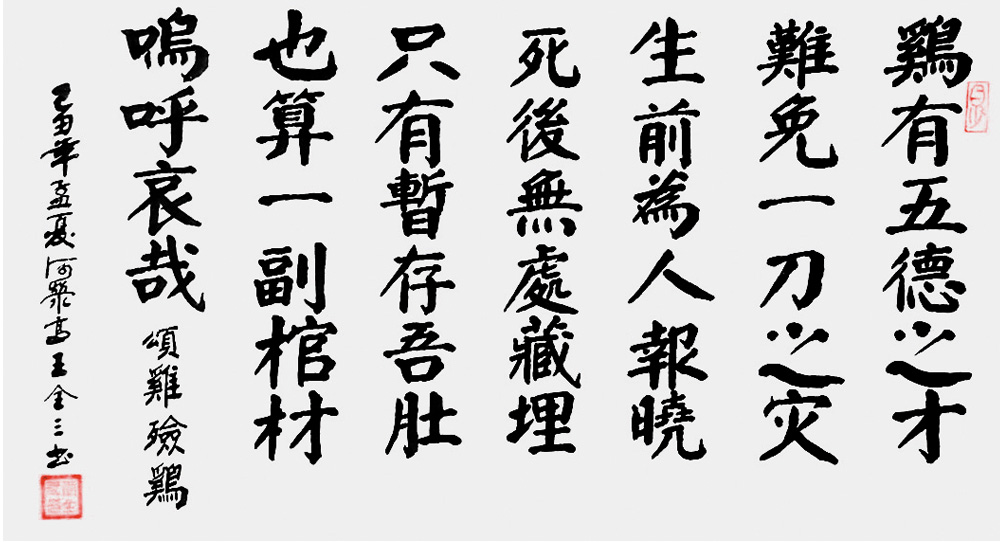 鷄有五德之才
難免一刀之灾
生前為人報曉
死後無處藏埋
只有暫存吾肚
也算一副棺材
嗚呼哀哉
頌雞殮鷄
年孟夏河高王三书